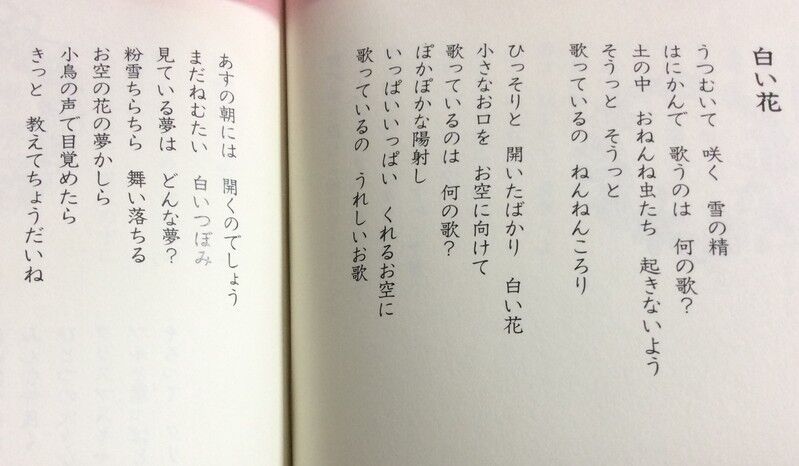 白い花
うつむいて　咲く　雪の精
はにかんで　歌うのは　何の歌？
土の中　おねんね虫たち　起きないよう
そうっと　そうっと
歌っているの　ねんねんころり
ひっそりと　開いたばかり　白い花
小さなお口を　お空に向けて
歌っているのは　何の歌？
ぽかぽかな陽射し
いっぱいいっぱい　くれるお空に
歌っているの　うれしいお歌
あすの朝には　開くのでしょう
まだねむたい　白いつぼみ
見ている夢は　どんな夢？
粉雪ちらちら　舞い落ちる
お空の花の夢かしら
小鳥の声で目覚めたら
きっと　教えてちょうだいね